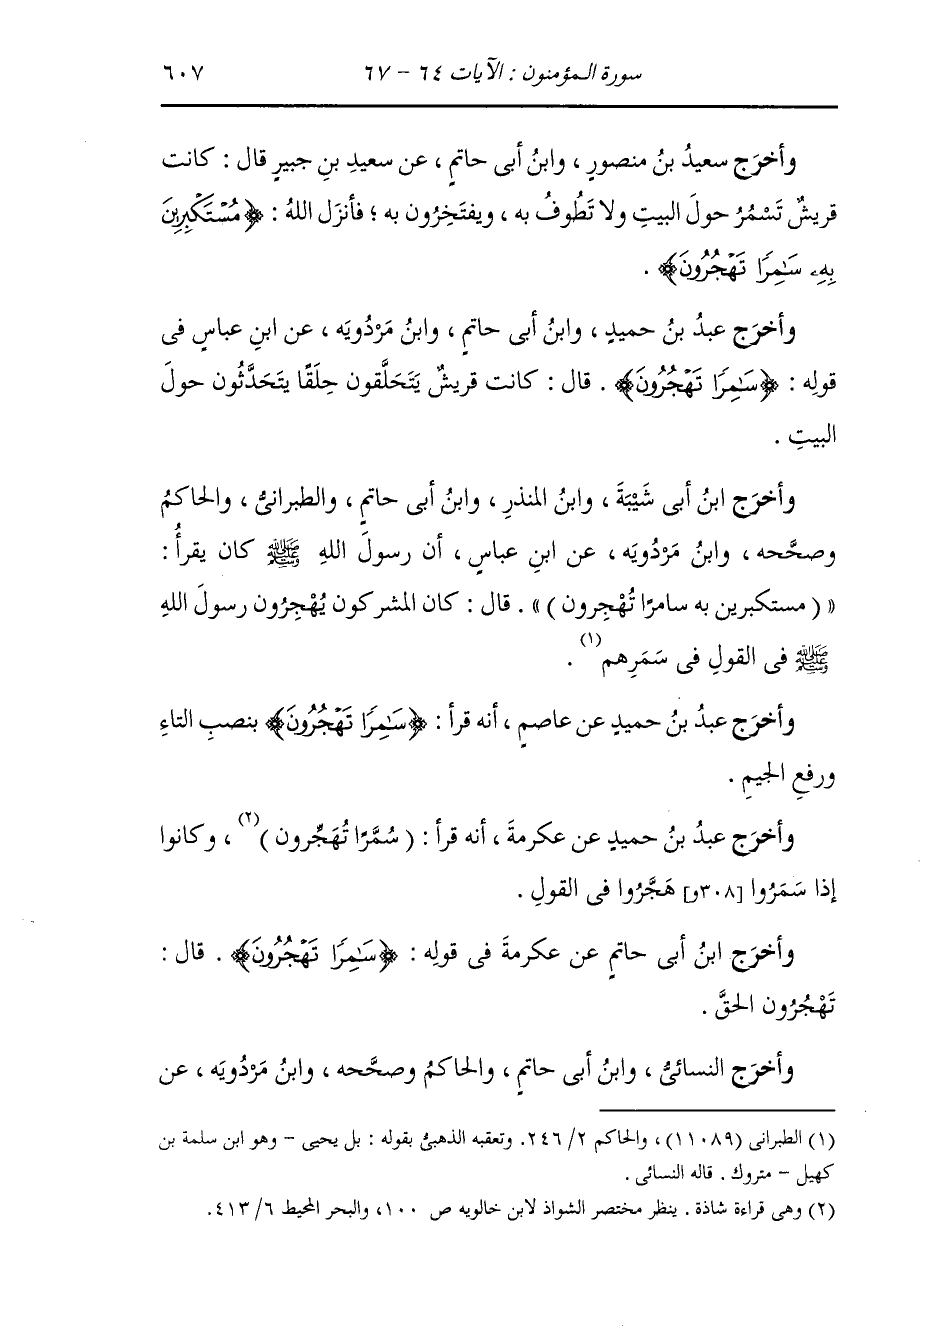 سورة المؤمنون : الآيات ٦٤ - ٦٧ ٦٠٧
وأخرَج سعيدُ بنُ منصورٍ ، وابنُ أبى حاتمٍ ، عن سعيدِ بنِ جبيرٍ قال : كانت
قريشٌ تَسْمُرُ حولَ البيتِ ولا تَطُوفُ به ، ويفتَخِرُون به ؛ فأنزَل اللهُ : ﴿مُسْتَكْبِرِينَ
بِهِۦ سَٰمِرًا تَهْجُرُونَ﴾ .
وأخرَج عبدُ بنُ حميدٍ ، وابنُ أبى حاتمٍ ، وابنُ مَرْدُويَه ، عن ابنِ عباسٍ فى
قولِه : ﴿سَٰمِرًا تَهْجُرُونَ﴾ . قال : كانت قريشٌ يَتَحَلَّقون حِلَقًا يتَحَدَّثُون حولَ
البيتِ .
وأخرَج ابنُ أبى شَيْبَةَ ، وابنُ المنذرِ ، وابنُ أبى حاتمٍ ، والطبرانىُّ ، والحاكمُ
وصحَّحه ، وابنُ مَرْدُويَه ، عن ابنِ عباسٍ ، أن رسولَ اللهِ ﷺ كان يقرأُ :
« ( مستكبرين به سامرًا تُهْجِرون ) » . قال : كان المشركون يُهْجِرُون رسولَ اللهِ
ﷺ فى القولِ فى سَمَرِهم(١) .
وأخرَج عبدُ بنُ حميدٍ عن عاصمٍ ، أنه قرأ : ﴿سَٰمِرًا تَهْجُرُونَ﴾ بنصبِ التاءِ
ورفعِ الجيمِ .
وأخرَج عبدُ بنُ حميدٍ عن عكرمةَ ، أنه قرأ : ( سُمَّرًا تُهَجِّرون )(٢) ، وكانوا
إذا سَمَرُوا [٣٠٨و] هَجَّرُوا فى القولِ .
وأخرَج ابنُ أبى حاتمٍ عن عكرمةَ فى قولِه : ﴿سَٰمِرًا تَهْجُرُونَ﴾ . قال :
تَهْجُرُون الحقَّ .
وأخرَج النسائىُّ ، وابنُ أبى حاتمٍ ، والحاكمُ وصحَّحه ، وابنُ مَرْدُويَه ، عن
(١) الطبرانى (١١٠٨٩) ، والحاكم ٢/ ٢٤٦. وتعقبه الذهبىُّ بقوله : بل يحيى - وهو ابن سلمة بن
كهيل - متروك . قاله النسائى .
(٢) وهى قراءة شاذة . ينظر مختصر الشواذ لابن خالويه ص ١٠٠، والبحر المحيط ٦/ ٤١٣.